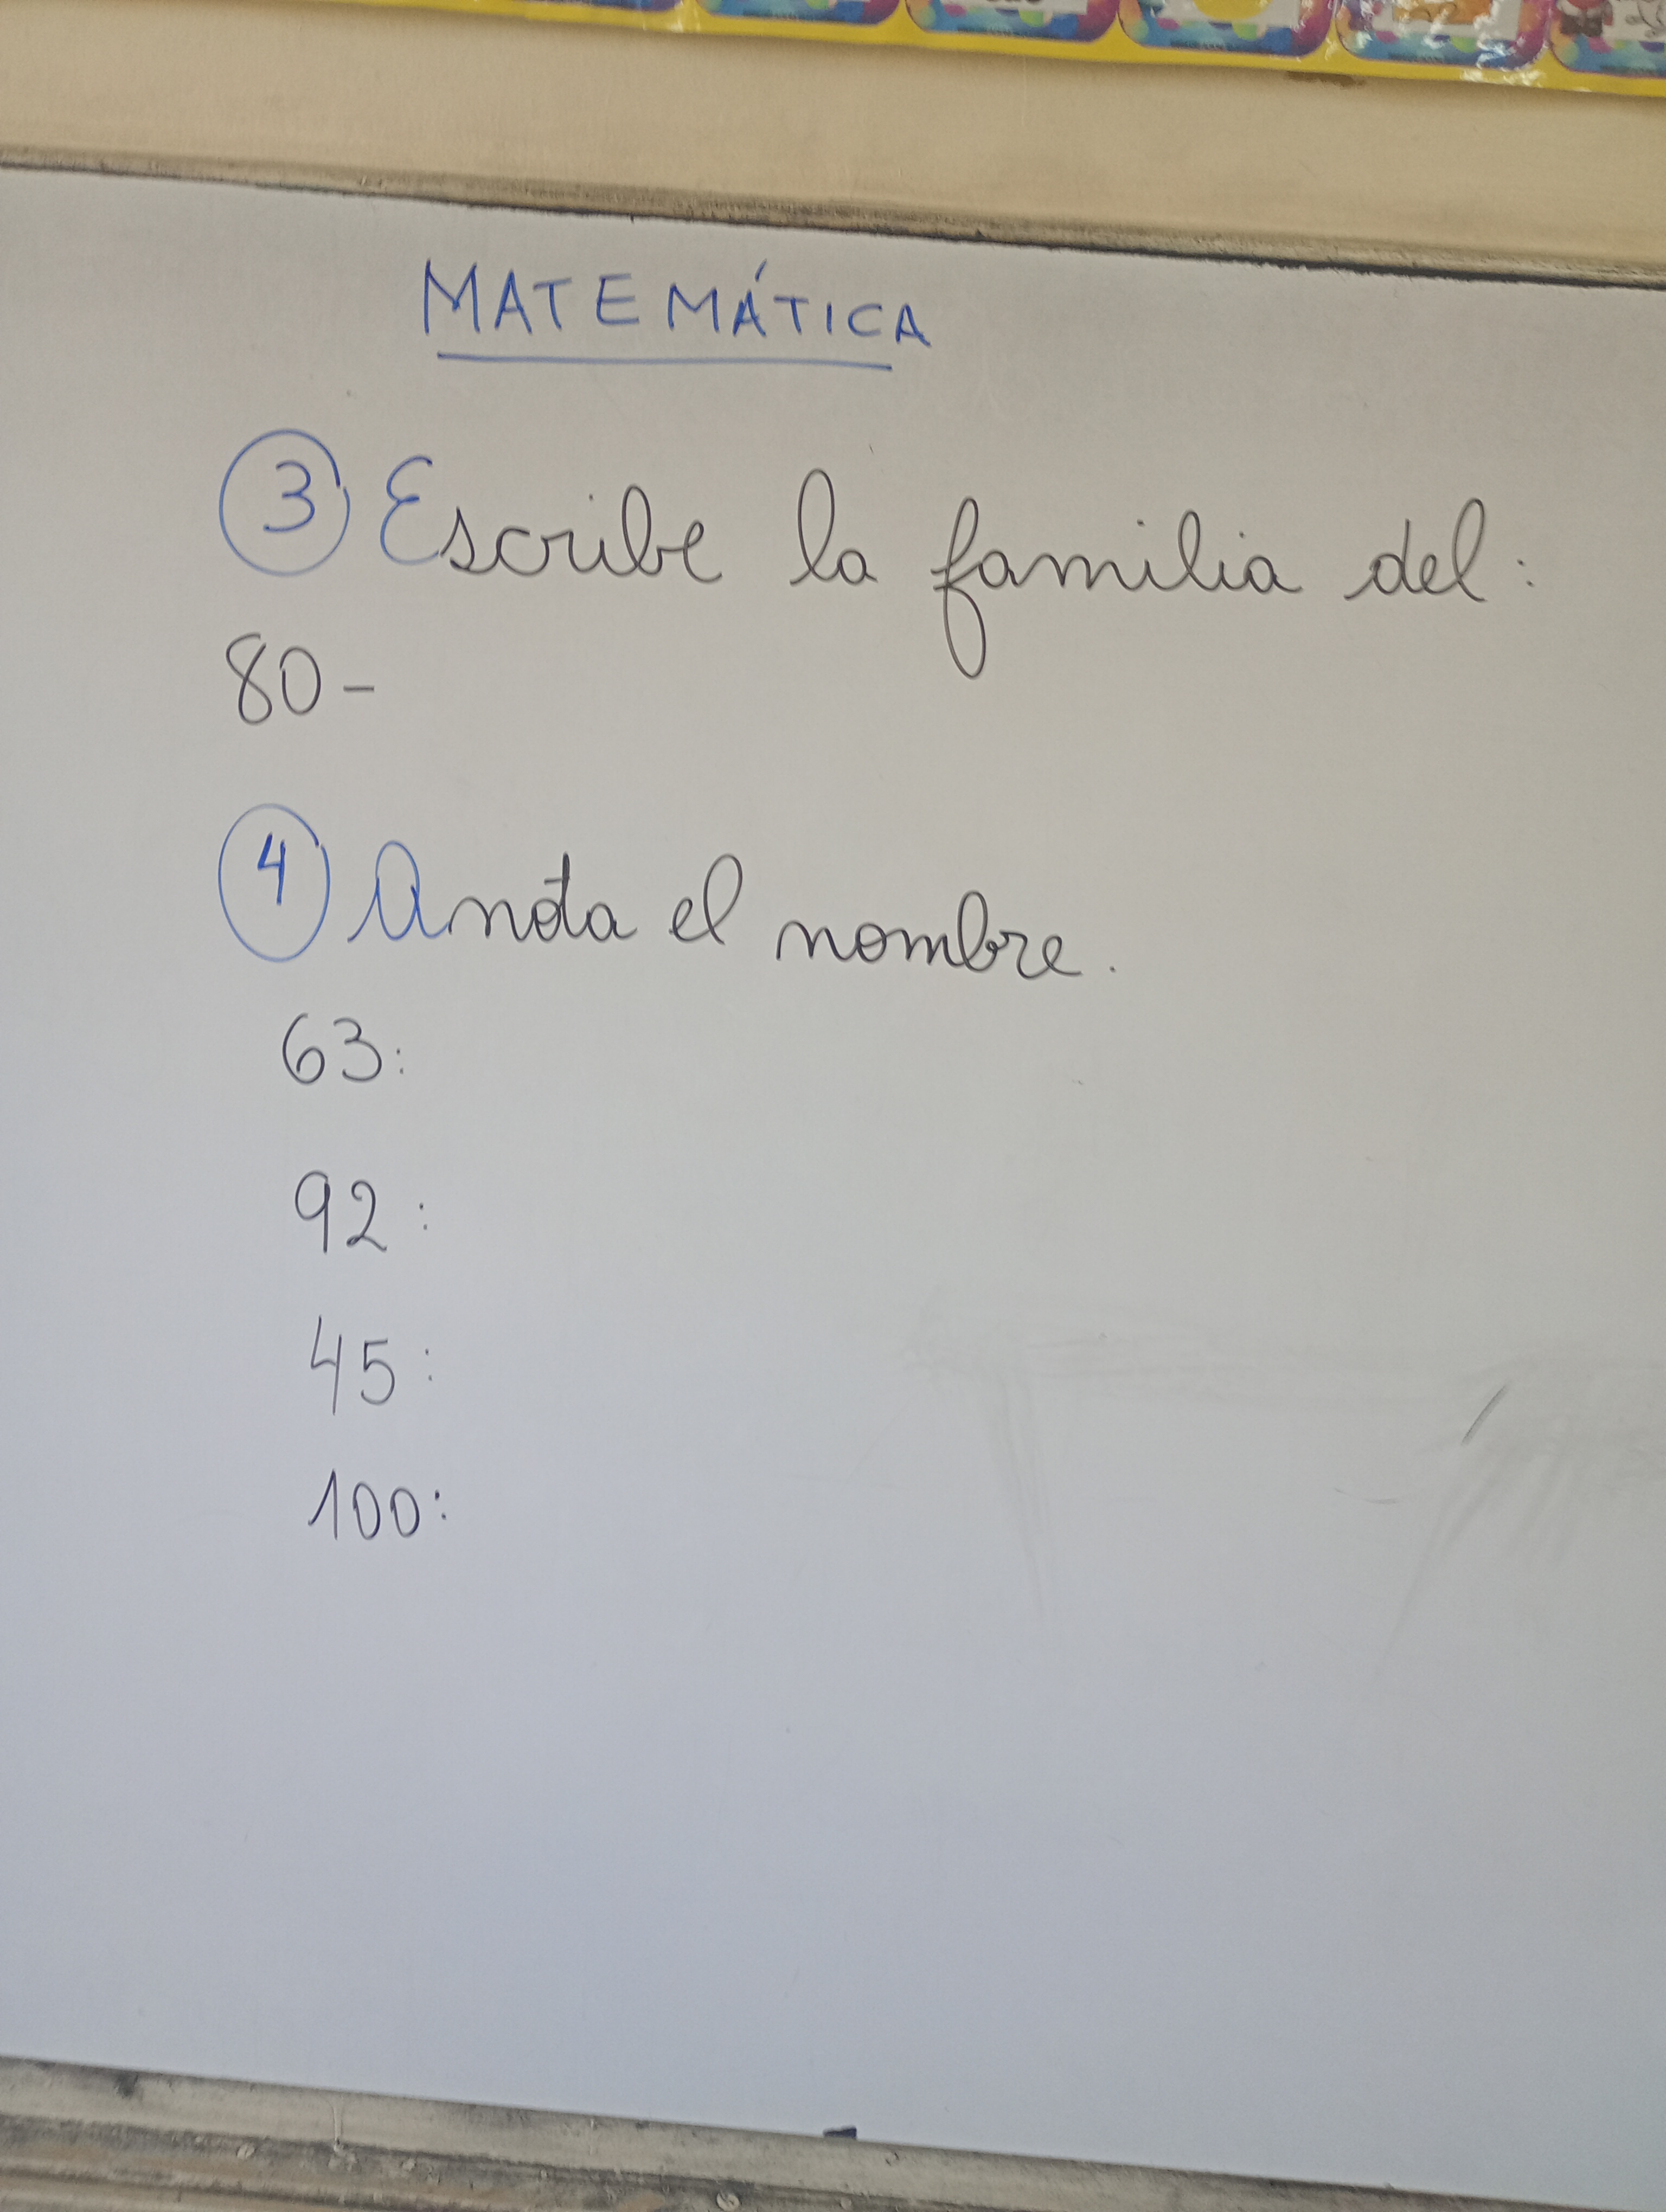 MATEMÁTICA
3 Escribe la familia del:
80-
4 Anota el nombre.
63:
92:
45:
100: